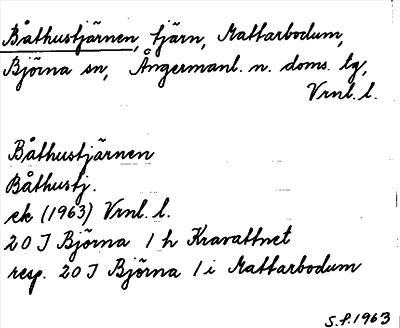 Båthustjärnen, tjärn, Mattarbodum,
Björna sn, Ångermanl. n. doms. tg,
Vrnl. l.
Båthustjärnen
Båthustj.
ek (1963) Vrnl. l.
20 I Björna 1 h Kravattnet
resp. 20 I Björna 1 i Mattarbodum
S.P. 1963